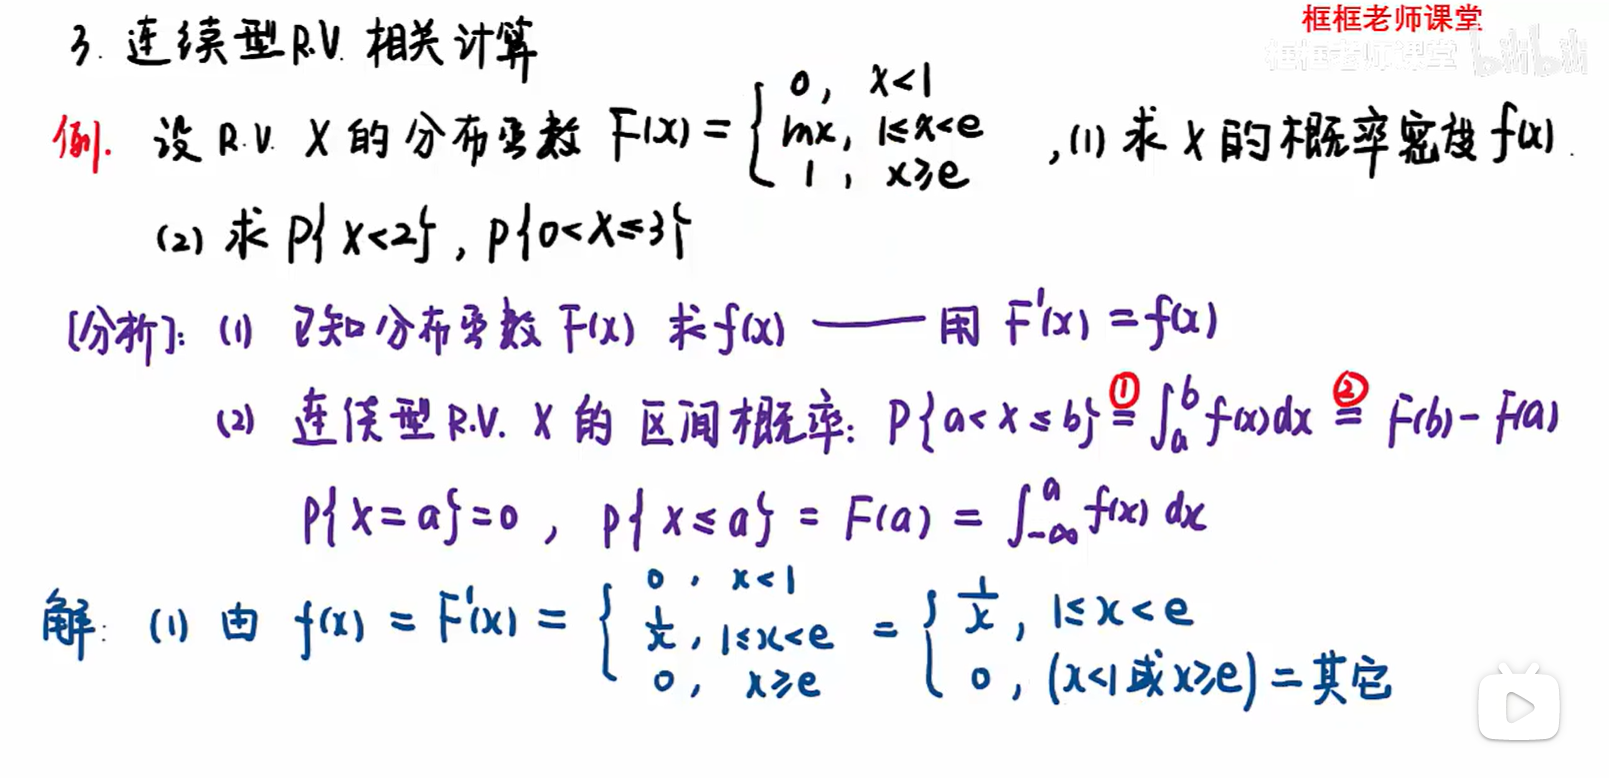 框框老师课堂
框框老师课堂 bilibili
3. 连续型R.V. 相关计算
例. 设 R.V. X 的分布函数 F(x) = { 0, x<1 ; lnx, 1≤x<e ; 1, x≥e , (1) 求 X 的概率密度 f(x).
(2) 求 P{X<2}, P{0<X≤3}
[分析]: (1) 已知分布函数 F(x) 求 f(x) —— 用 F'(x) = f(x)
(2) 连续型 R.V. X 的 区间概率: P{a<X≤b} ①= ∫_a^b f(x)dx ②= F(b) - F(a)
P{X=a}=0, P{X≤a} = F(a) = ∫_{-∞}^a f(x) dx
解: (1) 由 f(x) = F'(x) = { 0, x<1 ; 1/x, 1≤x<e ; 0, x≥e = { 1/x, 1≤x<e ; 0, (x<1或x≥e) = 其它